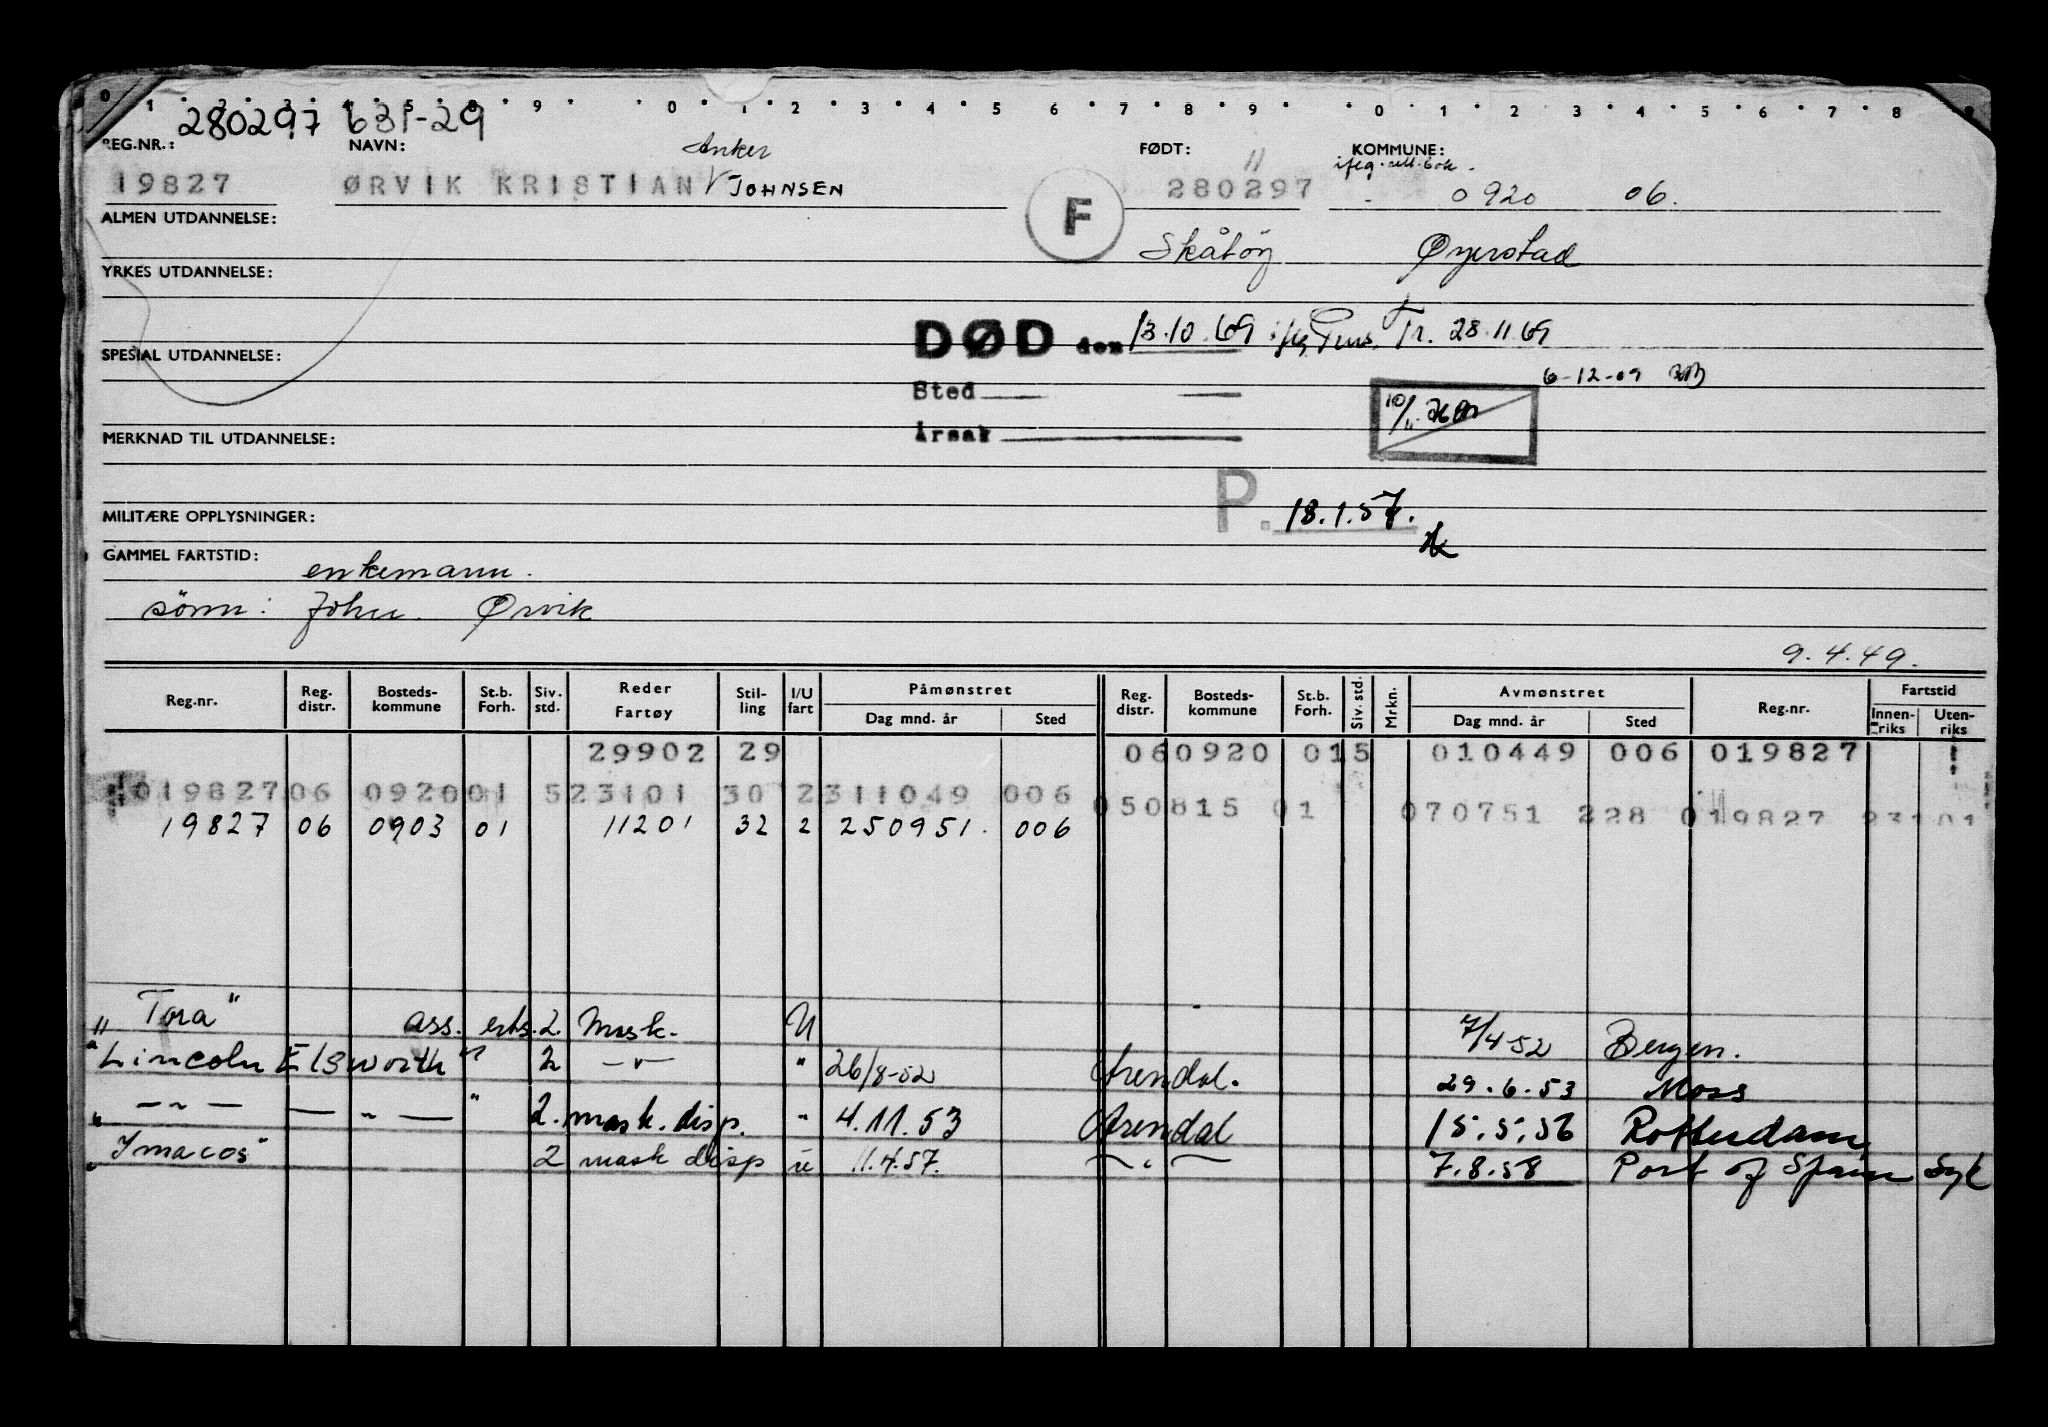 0 1 2 3 4 5 8 9 0 1 2 3 4 5 6 7 8 9 0 1 2 3 6 7 8 9
280297 631-29
REG.NR.: NAVN: Anker FØDT: 11 KOMMUNE:
19827 ØRVIK KRISTIAN V JOHNSEN 280297 0920 06.
ALMEN UTDANNELSE: F
Skåtøy Øyestad
YRKES UTDANNELSE:
DØD den 13.10.69 ifg Pens. Tr. 28.11.69
SPESIAL UTDANNELSE:
6-12-69
Sted
10/11
MERKNAD TIL UTDANNELSE: Årsak
P. 18.1.57.
MILITÆRE OPPLYSNINGER:
GAMMEL FARTSTID: enkemann.
sønn: John Ørvik
9.4.49.
Reg.nr. Reg. distr. Bosteds- kommune St.b. Forh. Siv. std. Reder Fartøy Stil- ling I/U fart Påmønstret Dag mnd. år Sted Reg. distr. Bosteds- kommune St.b. Forh. Siv. std. Mrkn. Avmønstret Dag mnd. år Sted Reg.nr. Fartstid Innen- riks Uten- riks
29902 29 060920 015 010449 006 019827
019827 06 0920 01 5 23101 30 2 311049 006 050815 01 070751 228 019827 23101
19827 06 0903 01 11201 32 2 250951. 006
"Tora" ass. 2. Mask. U 7/4 52 Bergen.
"Lincoln Elsworth" 2 -"- " 26/8-52 Arendal. 29.6.53 Moss
" -"- -"- " 2. mask. disp. " 4.11.53 Arendal 15.5.56 Rotterdam
"Imacos" 2 mask disp u 11.4.57. -"- 7.8.58 Port of Spain Syk